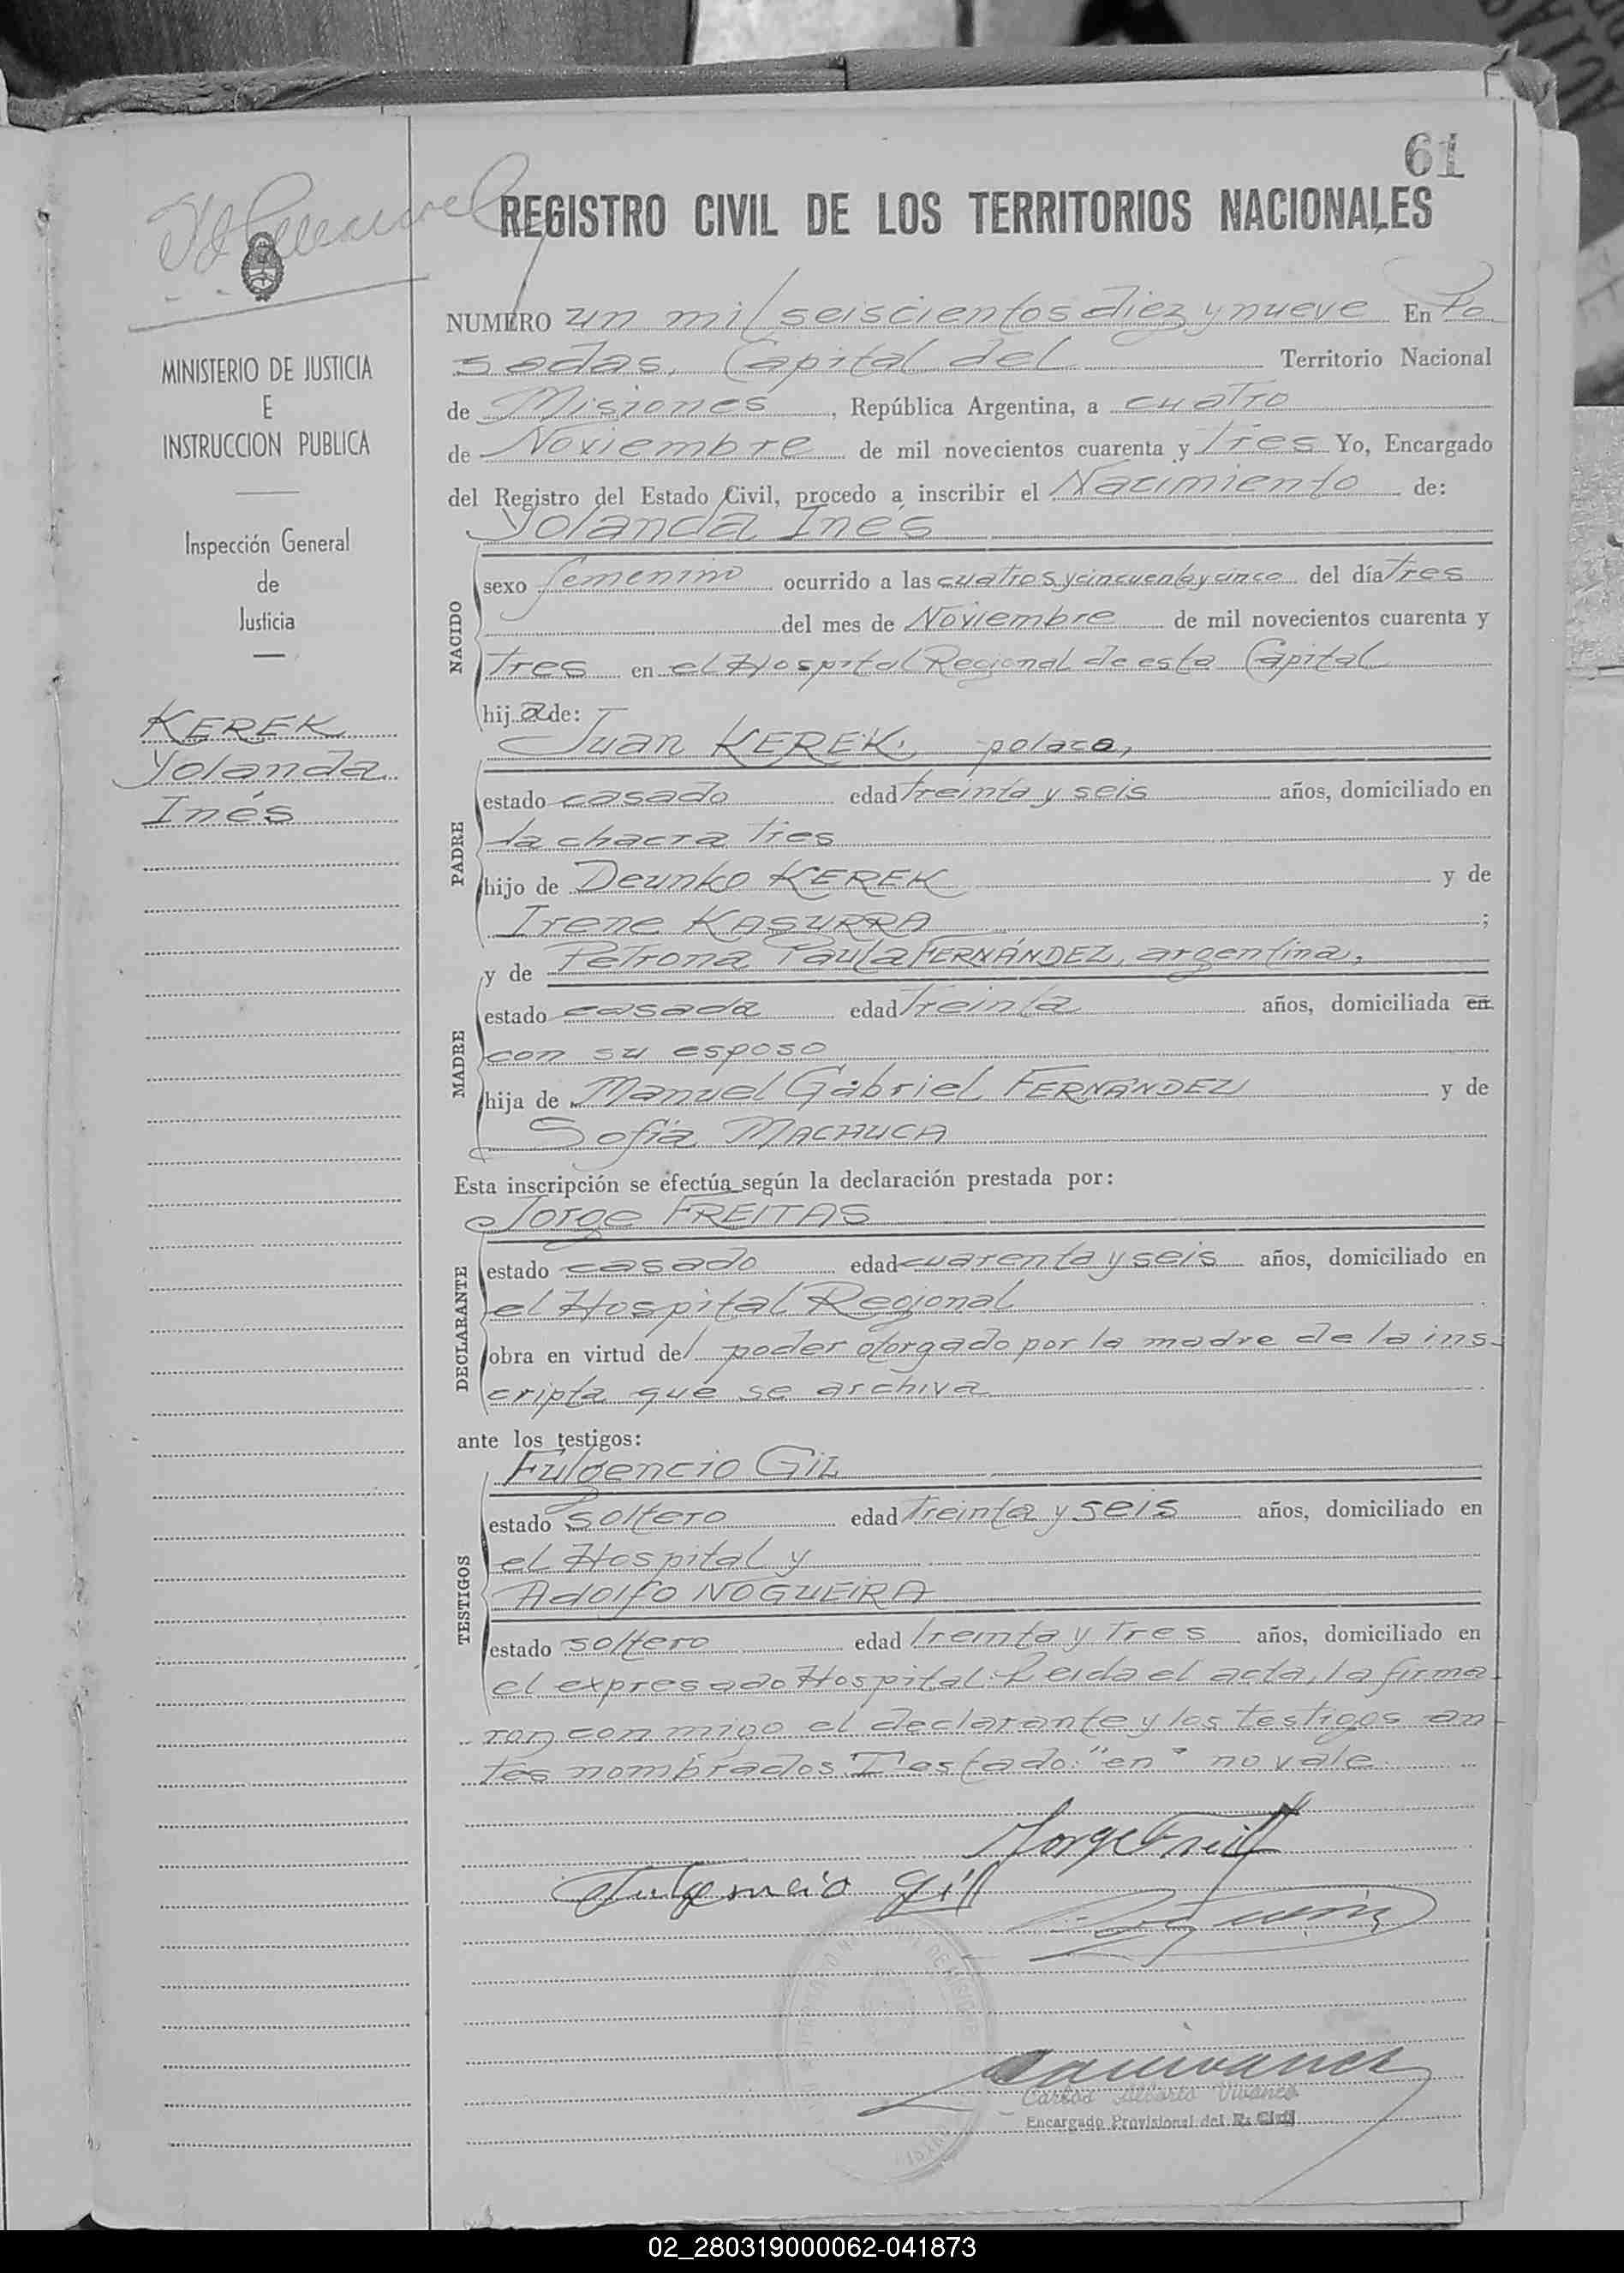 61
REGISTRO CIVIL DE LOS TERRITORIOS NACIONALES
NUMERO un mil seiscientos diez y nueve En Po
sadas, Capital del Territorio Nacional
de Misiones, República Argentina, a cuatro
de Noviembre de mil novecientos cuarenta y tres Yo, Encargado
del Registro del Estado Civil, procedo a inscribir el Nacimiento de:
Yolanda Inés
NACIDO
sexo femenino ocurrido a las cuatro y cincuenta y cinco del día tres
del mes de Noviembre de mil novecientos cuarenta y
tres en el Hospital Regional de esta Capital
hija de:
Juan KEREK, polaco,
PADRE
estado casado edad treinta y seis años, domiciliado en
la chacra tres
hijo de Deunko KEREK y de
Irene KASURRA;
y de Petrona Paula FERNÁNDEZ, argentina,
MADRE
estado casada edad treinta años, domiciliada en
con su esposo
hija de Manuel Gabriel FERNÁNDEZ y de
Sofía MACHUCA
Esta inscripción se efectúa según la declaración prestada por:
Jorge FREITAS
DECLARANTE
estado casado edad cuarenta y seis años, domiciliado en
el Hospital Regional
obra en virtud del poder otorgado por la madre de la ins-
cripta que se archiva
ante los testigos:
Fulgencio GIL
TESTIGOS
estado soltero edad treinta y seis años, domiciliado en
el Hospital y
Adolfo NOGUEIRA
estado soltero edad treinta y tres años, domiciliado en
el expresado Hospital. Leida el acta, la firma-
ron conmigo el declarante y los testigos an-
tes nombrados. Testado: "en" no vale
Fulgencio Gill
Carlos Alberto Vivanco
Encargado Provisional del R. Civil
MINISTERIO DE JUSTICIA
E
INSTRUCCION PUBLICA
Inspección General
de
Justicia
KEREK
Yolanda
Inés
02_280319000062-041873